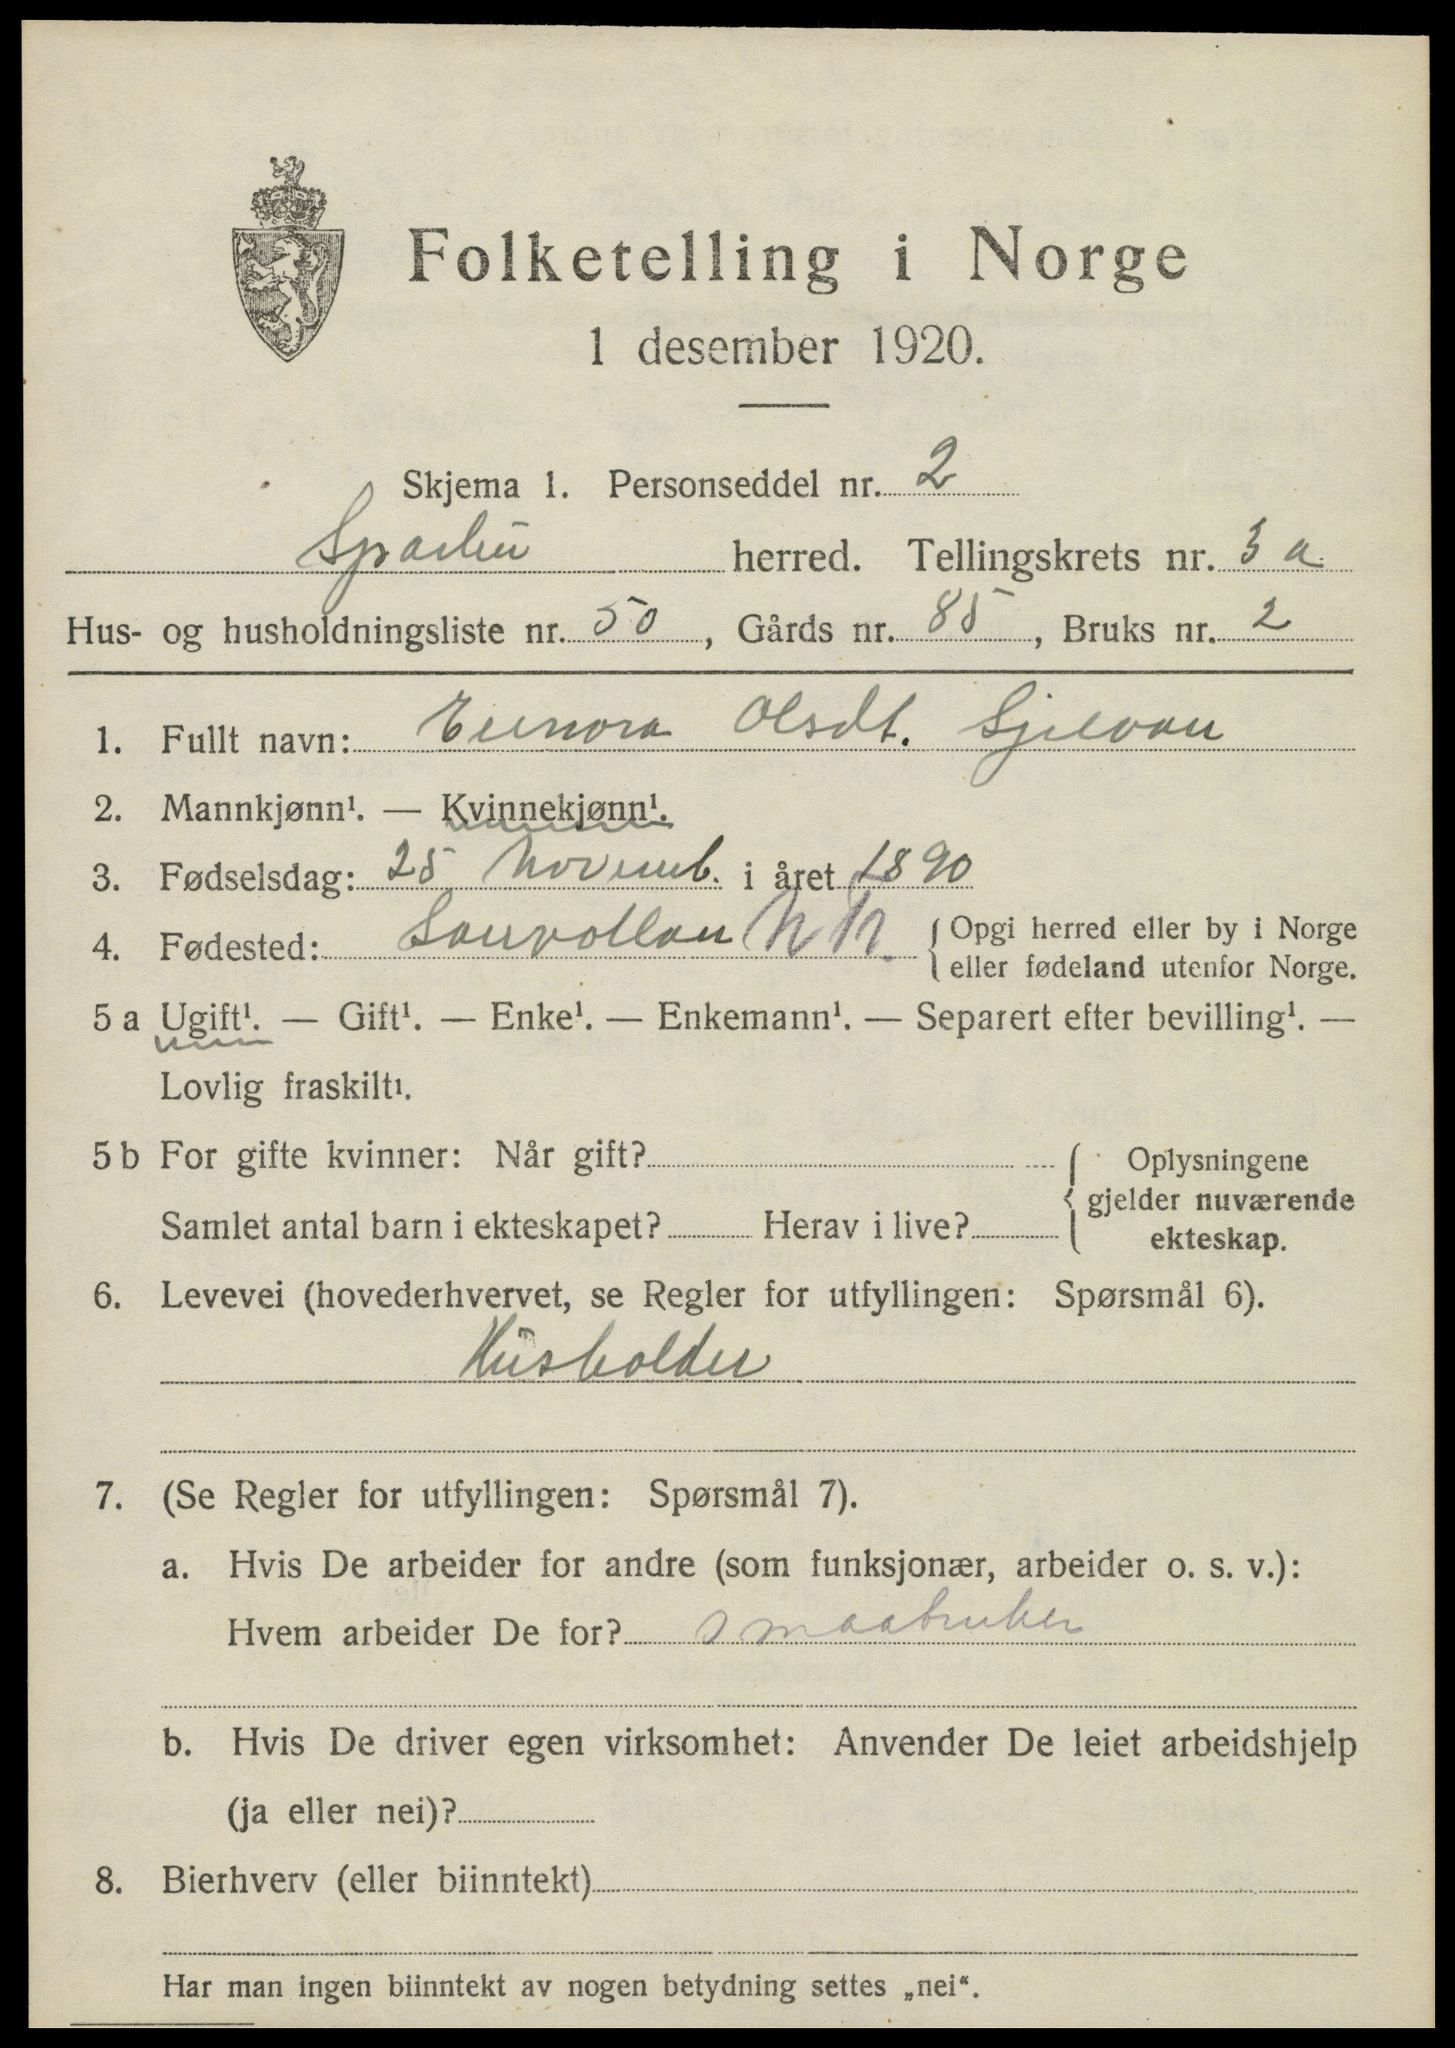 Folketelling i Norge
1 desember 1920.
Skjema 1. Personseddel nr. 2
Sparbu herred. Tellingskrets nr. 3 a.
Hus- og husholdningsliste nr. 50, Gårds nr. 85, Bruks nr. 2
1. Fullt navn: Olsdt.
2. Mannkjønn¹. — Kvinnekjønn¹.
3. Fødselsdag: 25 Novemb. i året 1890
4. Fødested: { Opgi herred eller by i Norge
eller fødeland utenfor Norge.
5 a Ugift¹. — Gift¹. — Enke¹. — Enkemann¹. — Separert efter bevilling¹. —
Lovlig fraskilt¹.
5 b For gifte kvinner: Når gift? { Oplysningene
gjelder nuværende
ekteskap.
Samlet antal barn i ekteskapet? Herav i live?
6. Levevei (hovederhvervet, se Regler for utfyllingen: Spørsmål 6).
Husholder
7. (Se Regler for utfyllingen: Spørsmål 7).
a. Hvis De arbeider for andre (som funksjonær, arbeider o. s. v.):
Hvem arbeider De for? smaabruker
b. Hvis De driver egen virksomhet: Anvender De leiet arbeidshjelp
(ja eller nei)?
8. Bierhverv (eller biinntekt)
Har man ingen biinntekt av nogen betydning settes „nei“.